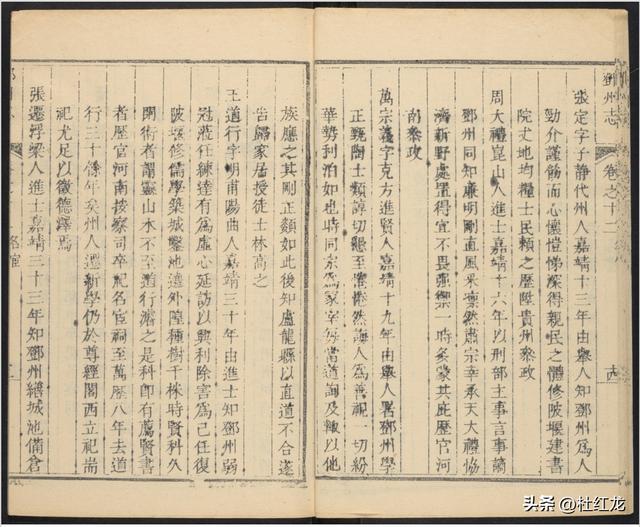 鄧州志
卷之十二
張定字子静代州人嘉靖十三年由舉人知鄧州爲人
勁介謹筋而心懷愷悌深得親民之體修陂堰建書
院丈地均糧士民賴之歷陞貴州叅政
周大禮崑山人進士嘉靖十六年以刑部主事言事謫
鄧州同知廉明剛直風采凛然肅宗幸承天大禮協
濟新野處置得宜不畏强禦一時多蒙其庇歷官河
南叅政
萬宗 字克方進賢人嘉靖十九年由舉人署鄧州學
正範陶士類諄切懇至 然誨人爲善視一切紛
華勢利泊如也時同宗爲冢宰每當道詢及輒以他
族應之其剛正類如此後知盧龍縣以直道不合遂
告歸家居授徒士林高之
王道行字明甫陽曲人嘉靖三十年由進士知鄧州弱
冠莅任練達有爲虚心延訪以興利除害爲己任復
陂堰修儒學築城鑿池遶外隄種樹千株時賢科久
開術者謂靈山水不至道行濬之是科即有薦賢書
者歷官河南按察司卒祀名宦祠至萬歷八年去道
行三十餘年矣州人遷新學仍於尊經閣西立祀耑
祀尤足以徵德澤焉
張僊浮梁人進士嘉靖三十三年知鄧州繕城池備倉
头条 @杜红龙